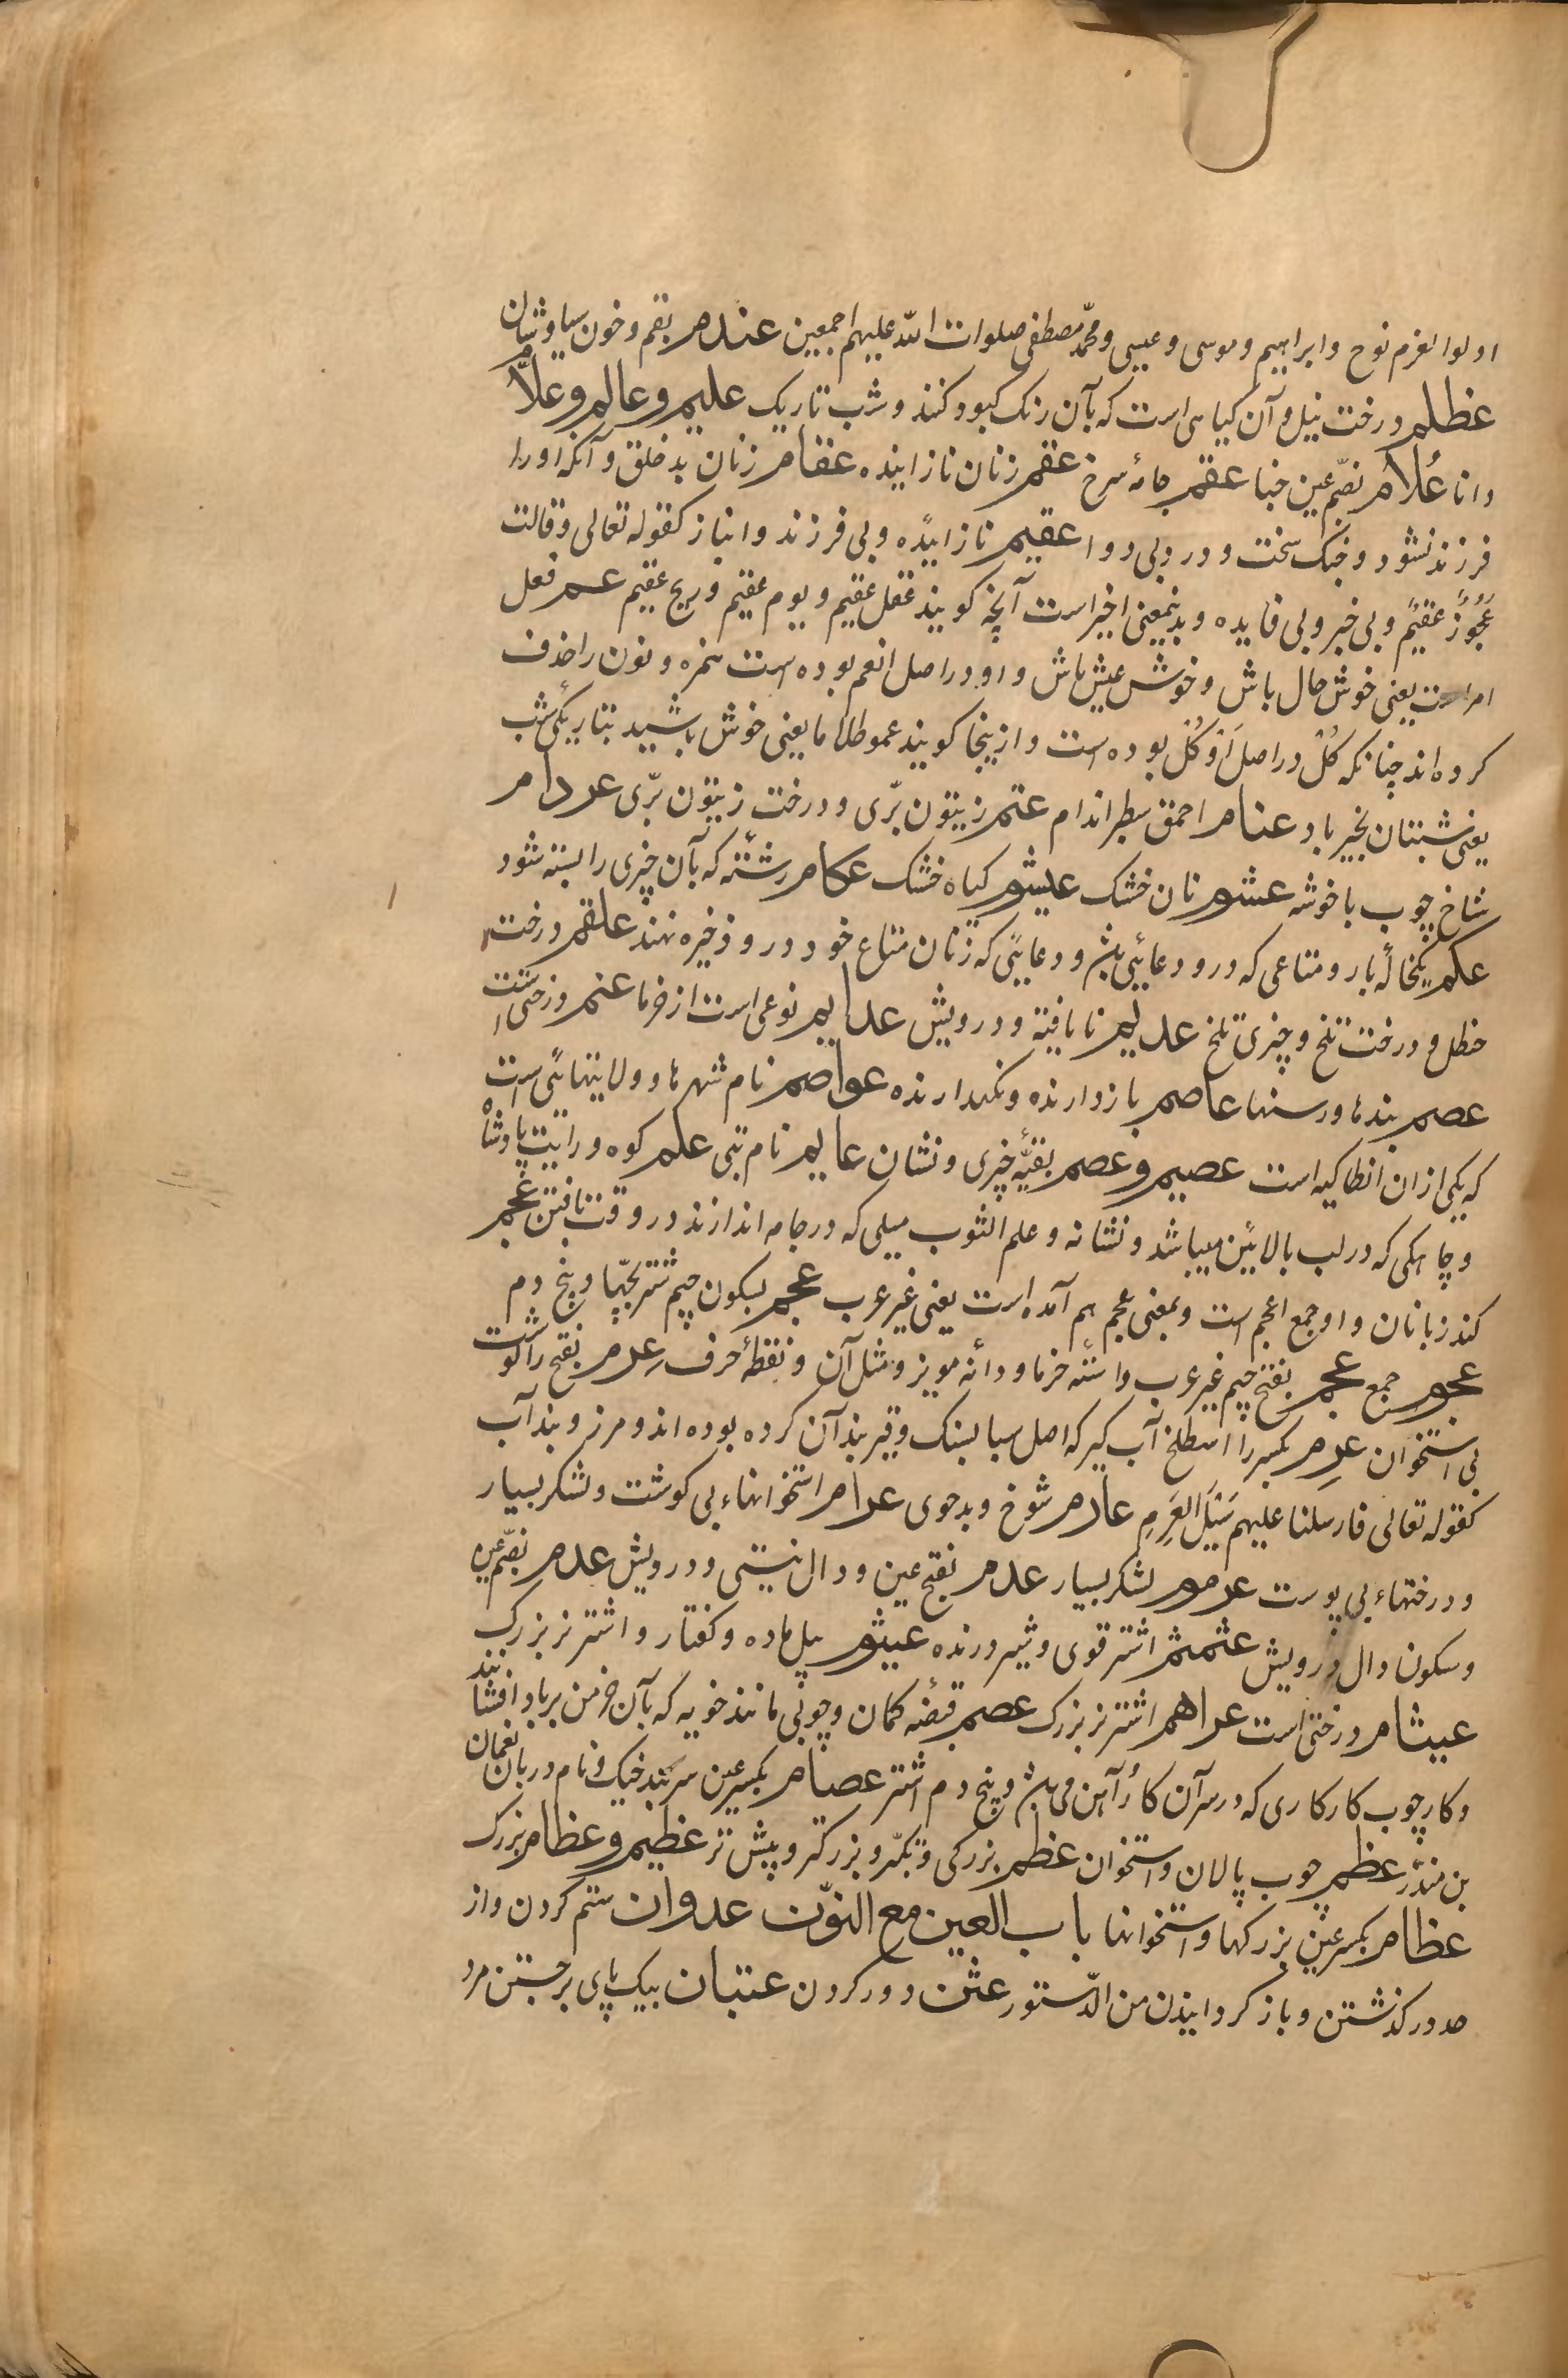 اولوا لعزم نوح و ابراهیم و موسی و عیسی و محمّد مصطفی صلوات الله علیهم اجمعین عندم بقم و خون سیاوشان
عظلم درخت نیل و آن کیاهی است که بآن رنک کبود کنند و شب تاریک علیم و عالم و علاّم
دانا عُلام بضمّ عین حنا عقم جامهٔ سرخ عقم زنان نازاینده عقام زنان بدخلق و آنکه او را
فرزند نشود و جنک سخت و درد بی دوا عقیم نازاینده و بی فرزند و انباز کقوله تعالی و قالت
عَجُوزٌ عَقیمٌ و بی خیر و بی فایده و بدینمعنی اخیر است آنچه کویند عقل عقیم و یوم عقیم و ریح عقیم عم فعل
امر است یعنی خوش حال باش و خوش عیش باش و او در اصل انعم بوده است همزه و نون را حذف
کرده اند چنانکه کُلْ در اصل اَؤکُلْ بوده است و ازینجا کویند عموظلاما یعنی خوش باشید بتاریکی شب
یعنی شبتان بخیر باد عنام احمق سطبر اندام عتم زیتون برّی و درخت زیتون برّی عردام
شاخ چوب با خوشه عشم نان خشک عیشوم کیاه خشک عکام رشته که بآن چیزی را بسته شود
عکم یکخالهٔ بار و متاعی که در و دعائی باشد و دعایی که زنان متاع خود در و ذخیره نهند علقم درخت
حنظل و درخت تلخ و چیزی تلخ عدیم نایافته و درویش عدایم نوعی است از خرما عنم درختی است
عصم بندها و رسنها عاصم بازدارنده و نکهدارنده عواصم نام شهرها و ولایتهائی است
که یکی از ان انطاکیه است عصیم و عصم بقیّهٔ چیزی و نشان عایم نام بتی علم کوه و رایت پادشاه
و چاهکی که در لب بالایین میباشد و نشانه و علم الثوب میلی که در جامه اندازند در وقت بافتن عجم
کند زبانان و او جمع اعجم است و بمعنی عجم هم آمده است یعنی غیر عرب عجم بسکون جیم شتر بچها و بیخ دم
عجوم جمع عجم بفتح جیم غیر عرب و استهٔ خرما و دانه مویز و مثل آن و نقطهٔ حرف عرم بفتح را کوشت
بی استخوان عرم بکسر را اسطلخ آب کیر که اهل سبا بسنک و قیر بند آن کرده بوده اند و مرز و بند آب
کقوله تعالی فارسلنا علیهم سَیْلَ العَرِمِ عارم شوخ و بدخوی عرام استخوانهاء بی کوشت و لشکر بسیار
و درختهاء بی پوست عرموم لشکر بسیار عدم بفتح عین و دال نیستی و درویش عدم بضمّ عین
و سکون دال درویش عثمثم اشتر قوی و شیر درنده عیثوم پیل ماده و کفتار و اشتر نر بزرک
عیثام درختی است عراهم اشتر نر بزرک عصم قبضه کمان و چوبی مانند خویه که بآن خرمن برباد افشانند
و کارچوب کارکاری که در سر آن کار آهن می باشد و بیخ دم اشتر عصام بکسر عین سربند خیک و نام دربان نعمان
بن منذر عظم چوب پالان و استخوان عظم بزرکی و تکبّر و بزرکتر و پیش تر عظیم و عظام بزرک
عظام بکسر عین بزرکها و استخوانها باب العین مع النوّن عدوان ستم کردن و از
حد درکذشتن و باز کردانیدن من الدّستور عثن دور کردن عتبان بیک پای برجستن مرد